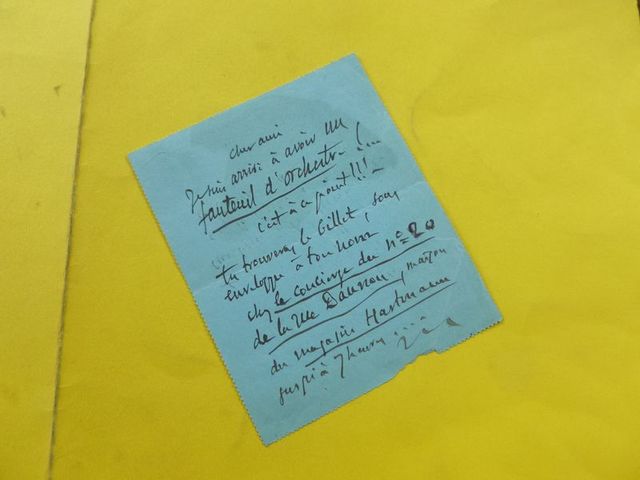 cher ami
Je suis arrivé à avoir un
fauteuil d'orchestre !
c'est à ce point !!!
tu trouveras le billet, sous
enveloppe à ton nom
chez le concierge du nº 20
de la rue Daunou, maison
du magasin Hartmann
jusqu'à 7 heures